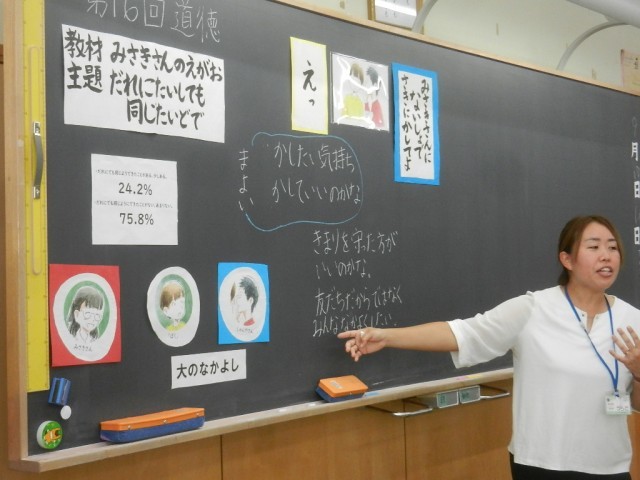 第16回 道徳
教材 みさきさんのえがお
主題 だれにたいしても
同じたいどで
えっ
みさきさんに
ないしょで
さきにかしてよ
24.2%
75.8%
まよい
かしたい気持ち
かしていいのかな
きまりを守った方が
いいのかな。
友だちだからではなく
みんななかよくしたい。
みさきさん
大のなかよし
月
日